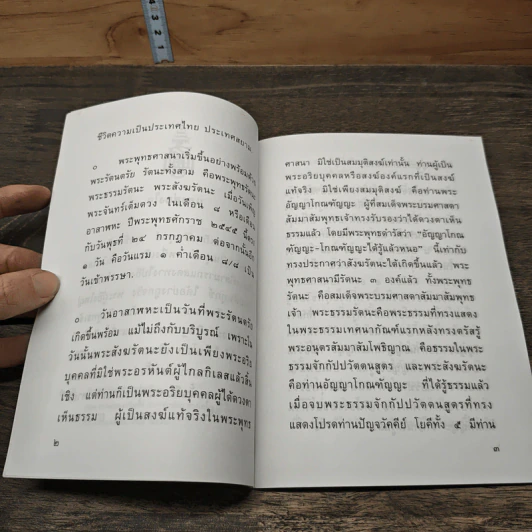 4 3 2 1
ชีวิตความเป็นประเทศไทย ประเทศสยาม
๐ พระพุทธศาสนาเริ่มขึ้นอย่างพร้อม
พระรัตนตรัย รัตนะทั้งสาม คือพระพุทธรัตนะ
พระธรรมรัตนะ พระสังฆรัตนะ เมื่อวันเพ็ญ
พระจันทร์เต็มดวง ในเดือน ๘ หรือเดือน
อาสาฬหะ ปีพระพุทธศักราช ๒๕๔๕ นี้ตรง
กับวันพุธที่ ๒๔ กรกฎาคม ต่อจากนั้นอีก
๑ วัน คือวันแรม ๑ ค่ำเดือน ๘/๘ เป็น
วันเข้าพรรษา.
๐ วันอาสาฬหะเป็นวันที่พระรัตนตรัย
เกิดขึ้นพร้อม แม้ไม่ถึงกับบริบูรณ์ เพราะใน
วันนั้นพระสังฆรัตนะยังเป็นเพียงพระอริย
บุคคลที่มิใช่พระอรหันต์ผู้ไกลกิเลสแล้วสิ้น
เชิง แต่ท่านก็เป็นพระอริยบุคคลผู้ได้ดวงตา
เห็นธรรม ผู้เป็นสงฆ์แท้จริงในพระพุทธ
๒
ศาสนา มิใช่เป็นสมมุติสงฆ์เท่านั้น ท่านผู้เป็น
พระอริยบุคคลหรือสงฆ์องค์แรกที่เป็นสงฆ์
แท้จริง มิใช่เพียงสมมุติสงฆ์ คือท่านพระ
อัญญาโกณฑัญญะ ผู้ที่สมเด็จพระบรมศาสดา
สัมมาสัมพุทธเจ้าทรงรับรองว่าได้ดวงตาเห็น
ธรรมแล้ว โดยมีพระพุทธดำรัสว่า “อัญญาโกณ
ฑัญญะ-โกณฑัญญะได้รู้แล้วหนอ” นี้เท่ากับ
ทรงประกาศว่าสังฆรัตนะได้เกิดขึ้นแล้ว พระ
พุทธศาสนามีรัตนะ ๓ องค์แล้ว ทั้งพระพุทธ
รัตนะ คือสมเด็จพระบรมศาสดาสัมมาสัมพุทธ
เจ้า พระธรรมรัตนะคือพระธรรมที่ทรงแสดง
ในพระธรรมเทศนากัณฑ์แรกหลังทรงตรัสรู้
พระอนุตรสัมมาสัมโพธิญาณ คือธรรมในพระ
ธรรมจักกัปปวัตตนสูตร และพระสังฆรัตนะ
คือท่านอัญญาโกณฑัญญะ ที่ได้รู้ธรรมแล้ว
เมื่อจบพระธรรมจักกัปปวัตตนสูตรที่ทรง
แสดงโปรดท่านปัญจวัคคีย์ โยคีทั้ง ๕ มีท่าน
๓